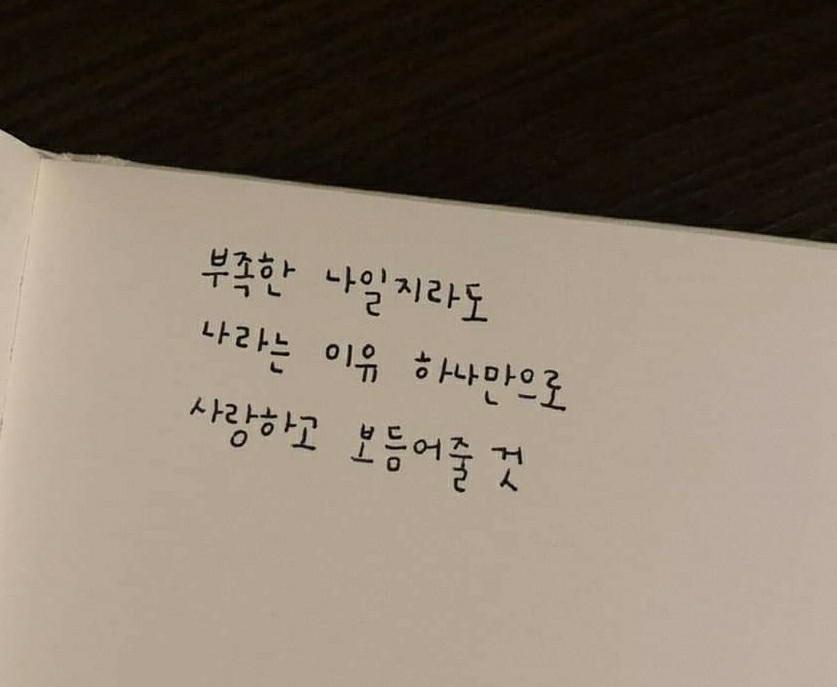 부족한 나일지라도
나라는 이유 하나만으로
사랑하고 보듬어줄 것